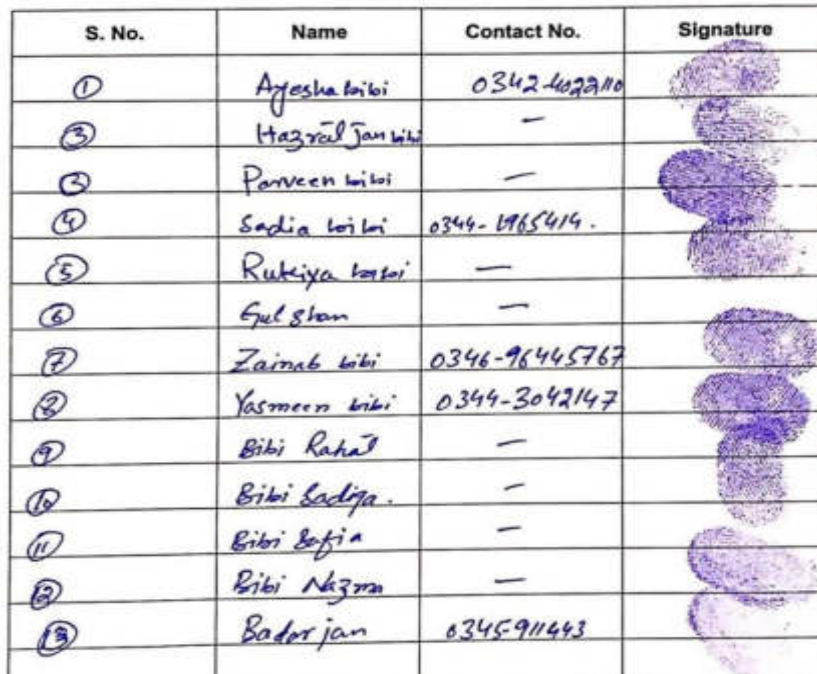 S. No. Name Contact No. Signature
① Ayesha bibi 0342-4022110
③ Hazrat Jan bibi —
③ Parveen bibi —
④ Sadia bibi 0344-1965414.
⑤ Rukiya bibi —
⑥ Gulshan —
⑦ Zainab bibi 0346-96445767
⑧ Yasmeen bibi 0344-3042147
⑨ Bibi Rahat —
⑩ Bibi Sadiqa. —
⑪ Bibi Safia —
⑫ Bibi Nazma —
⑬ Badar jan 0345-911443